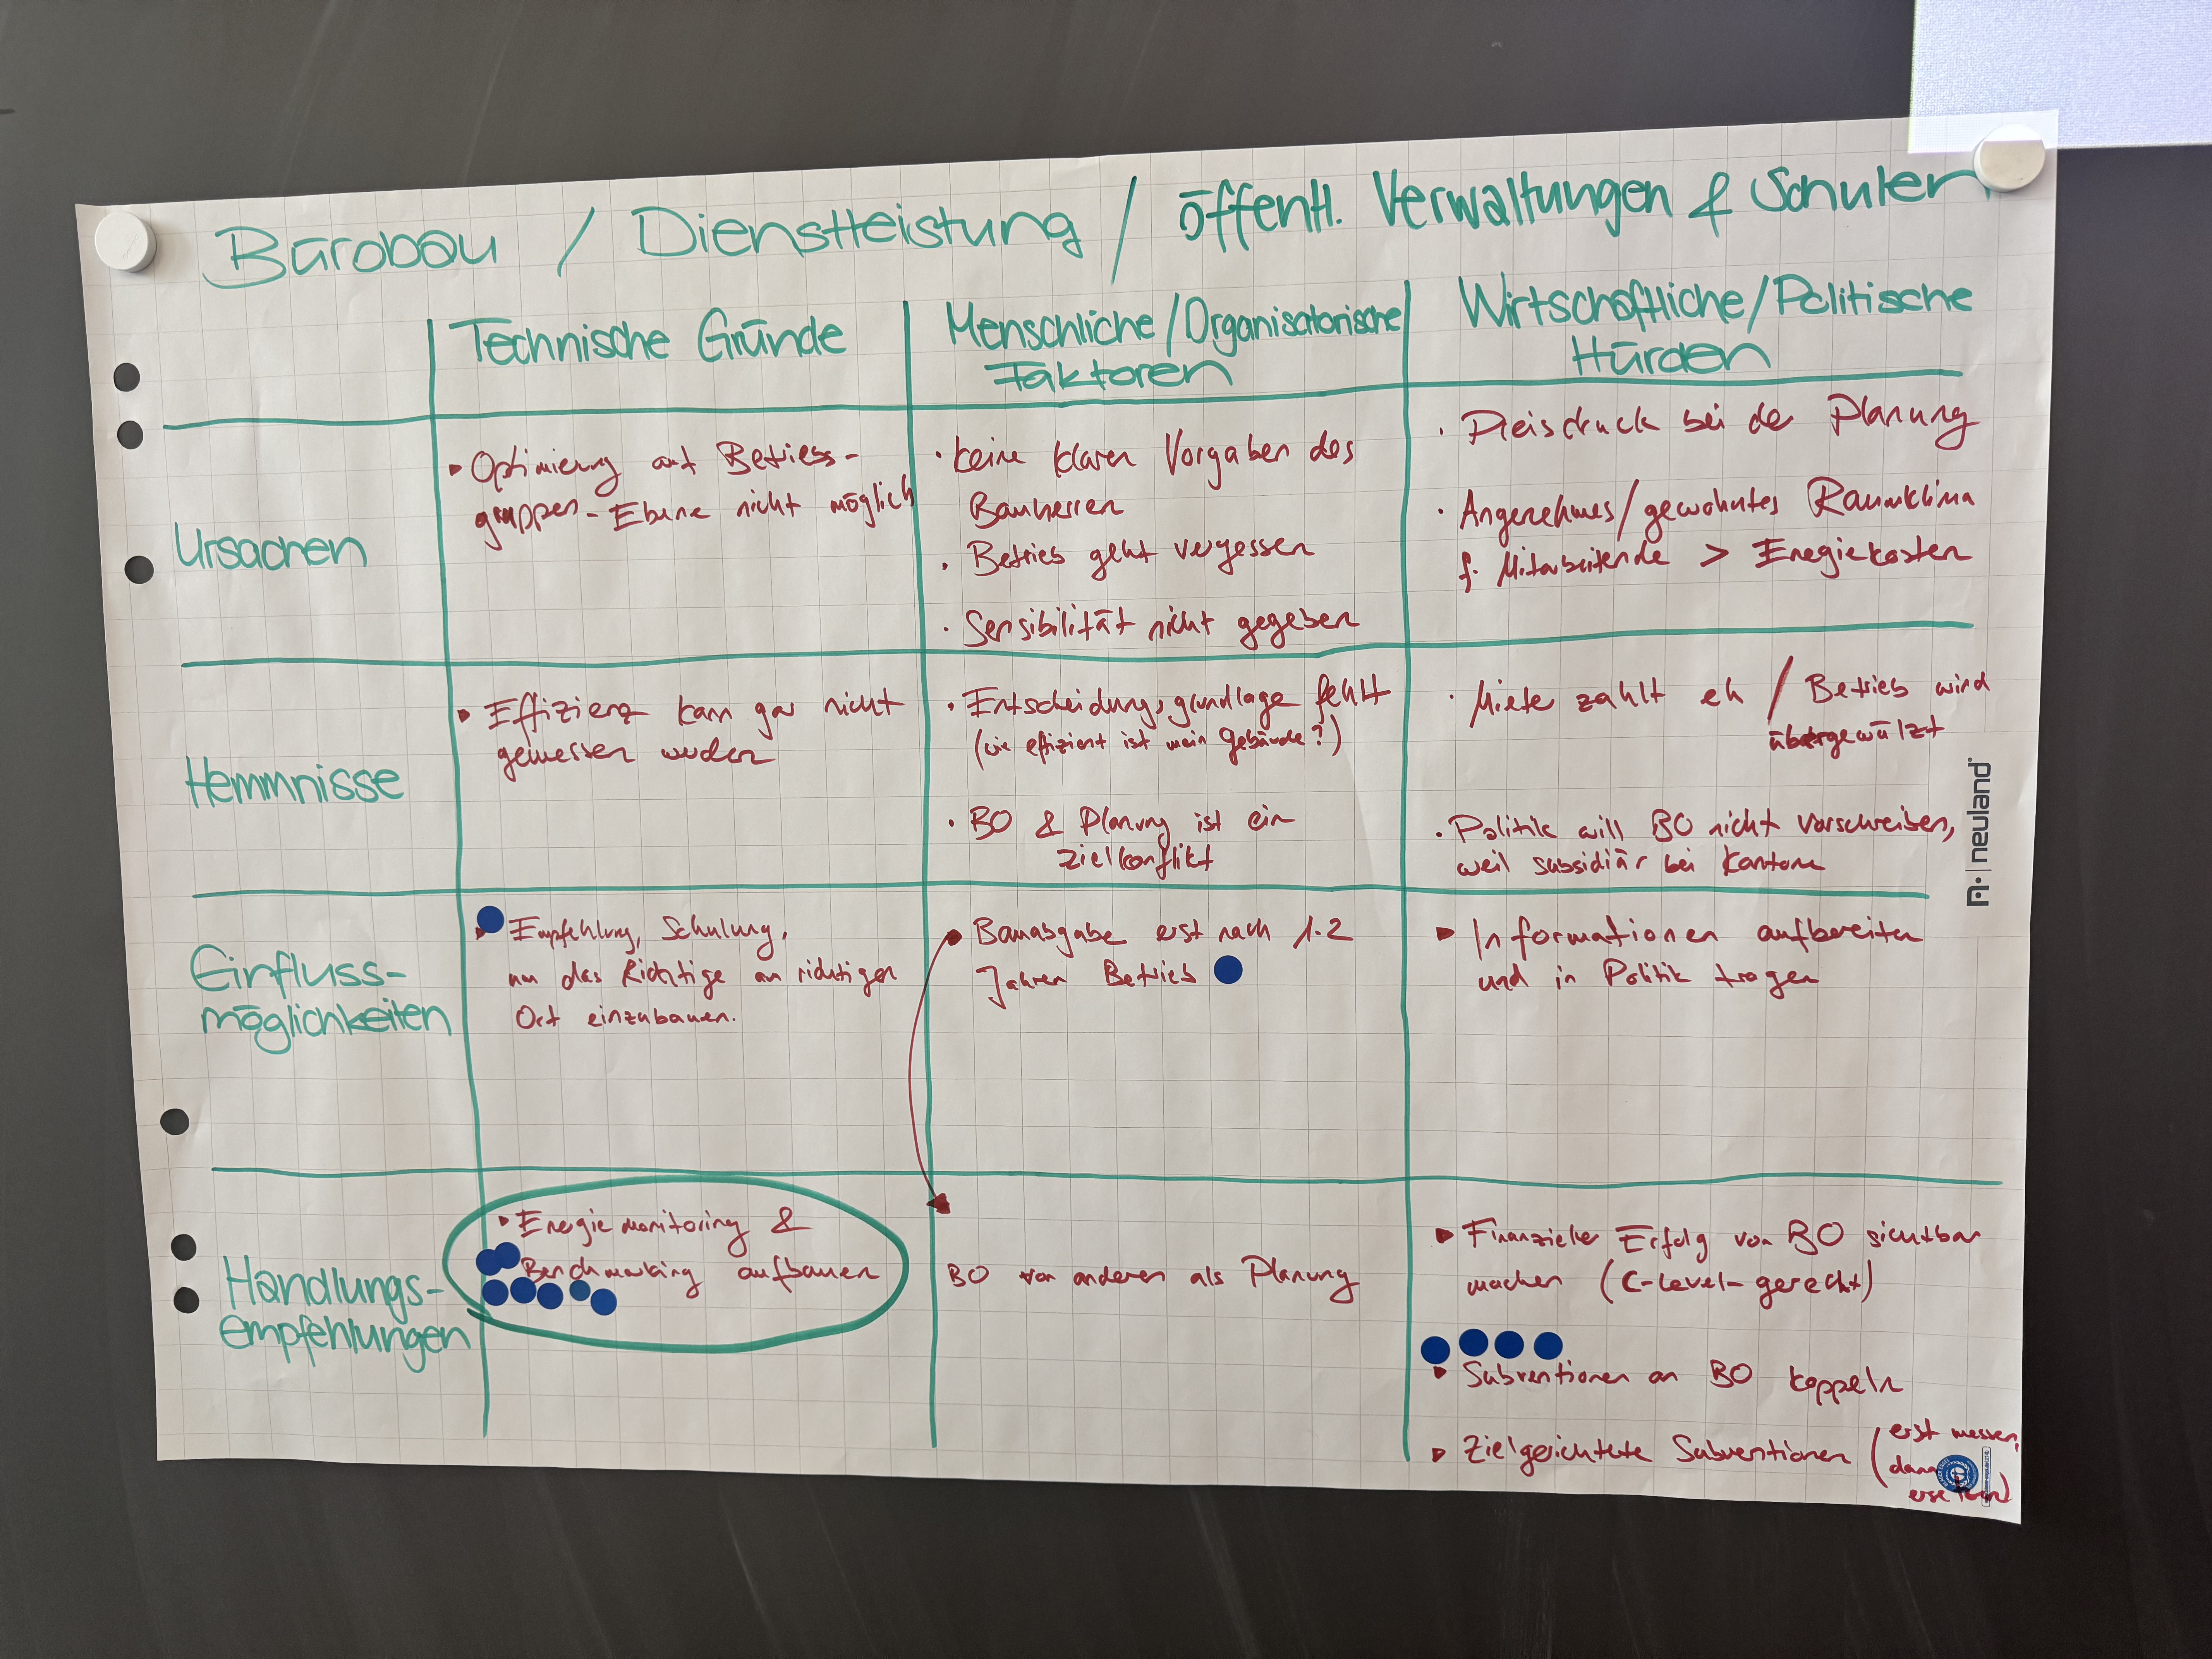 Bürobau / Dienstleistung / öffentl. Verwaltungen & Schulen
Technische Gründe
Menschliche/Organisatorische
Faktoren
Wirtschaftliche/Politische
Hürden
Ursachen
Optimierung auf Betriebs-
gruppen-Ebene nicht möglich
· keine klaren Vorgaben des
Bauherren
· Betrieb geht vergessen
· Sensibilität nicht gegeben
· Preisdruck bei der Planung
· Angenehmes/gewohntes Raumklima
f. Mitarbeitende > Energiekosten
Hemmnisse
Effizienz kann gar nicht
gemessen werden
· Entscheidungsgrundlage fehlt
(wie effizient ist mein Gebäude?)
· BO & Planung ist ein
Zielkonflikt
· Mieter zahlt eh / Betrieb wird
übergewälzt
· Politik will BO nicht vorschreiben,
weil subsidiär bei Kantone
Einfluss-
möglichkeiten
Empfehlung, Schulung,
um das Richtige am richtigen
Ort einzubauen.
Bauabgabe erst nach 1-2
Jahren Betrieb
Informationen aufbereiten
und in Politik tragen
Handlungs-
empfehlungen
Energiemonitoring &
Benchmarking aufbauen
BO von anderen als Planung
Finanzieller Erfolg von BO sichtbar
machen (C-Level-gerecht)
Subventionen an BO koppeln
Zielgerichtete Subventionen (erst messen,
dann
ersetzen)
neuland